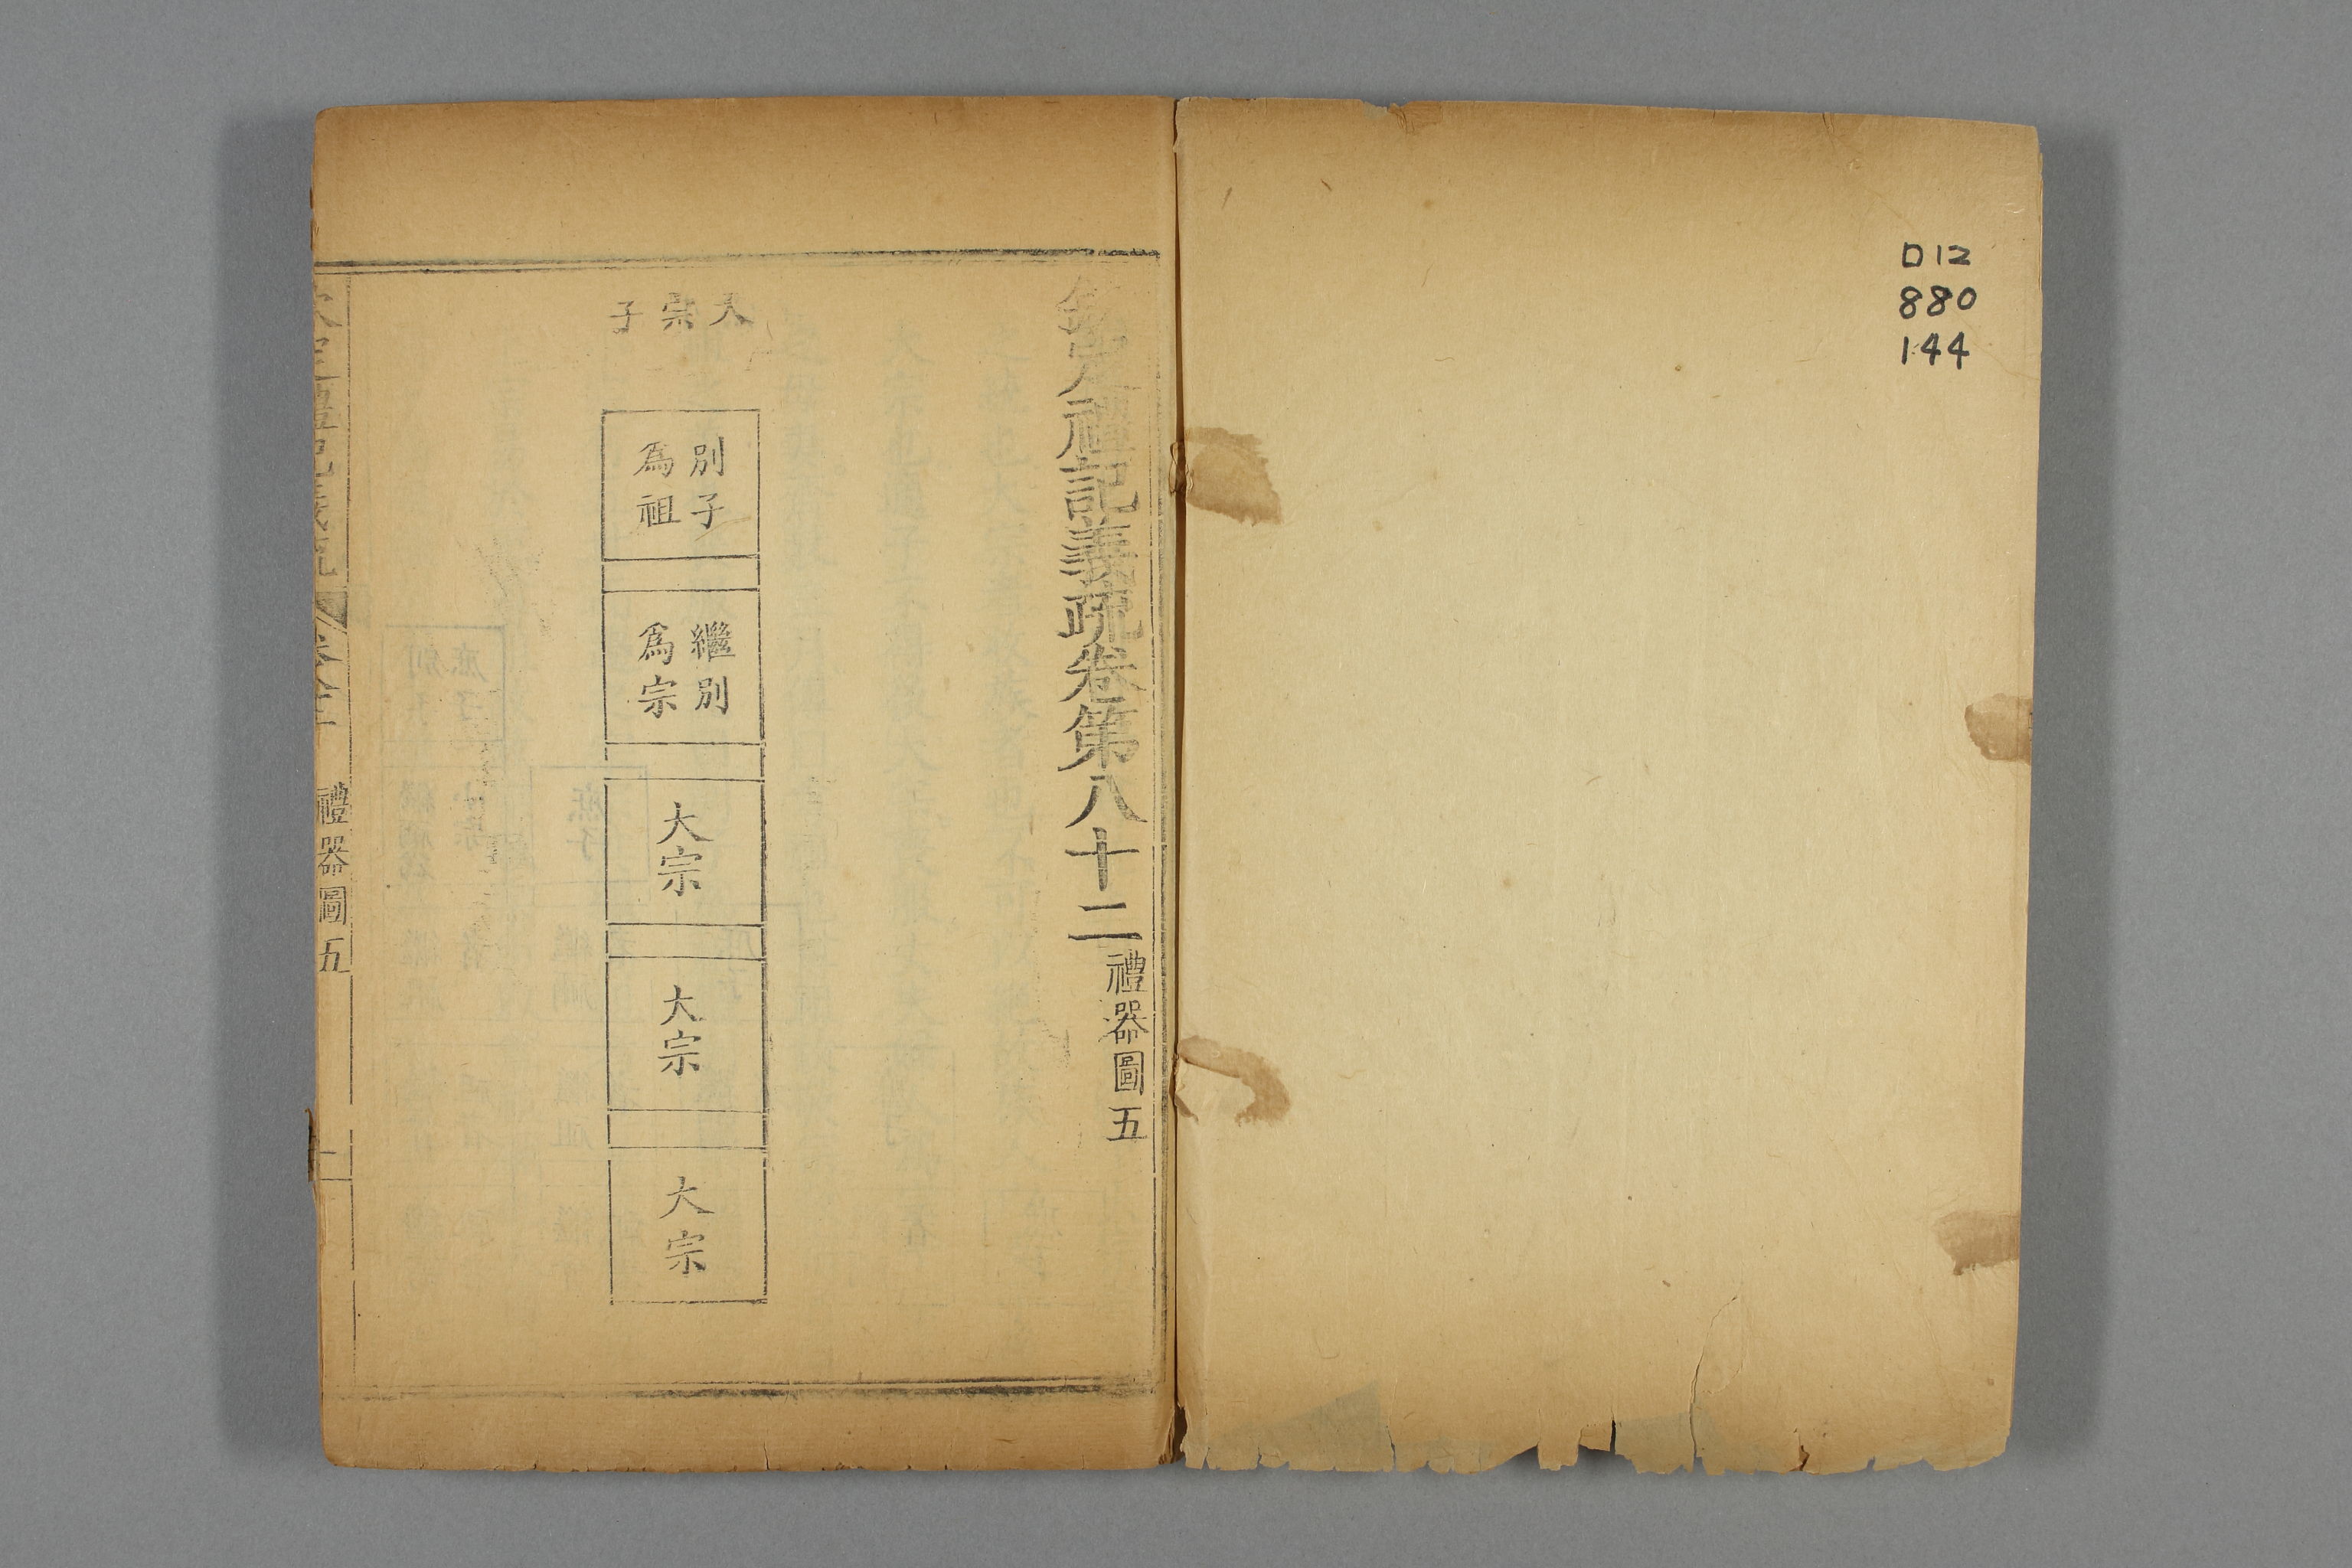 D12
880
144
欽定禮記義疏卷第八十二 禮器圖五
大宗子
別子
爲祖
繼別
爲宗
大宗
大宗
大宗
欽定禮記義疏 卷八十二 禮器圖五 一